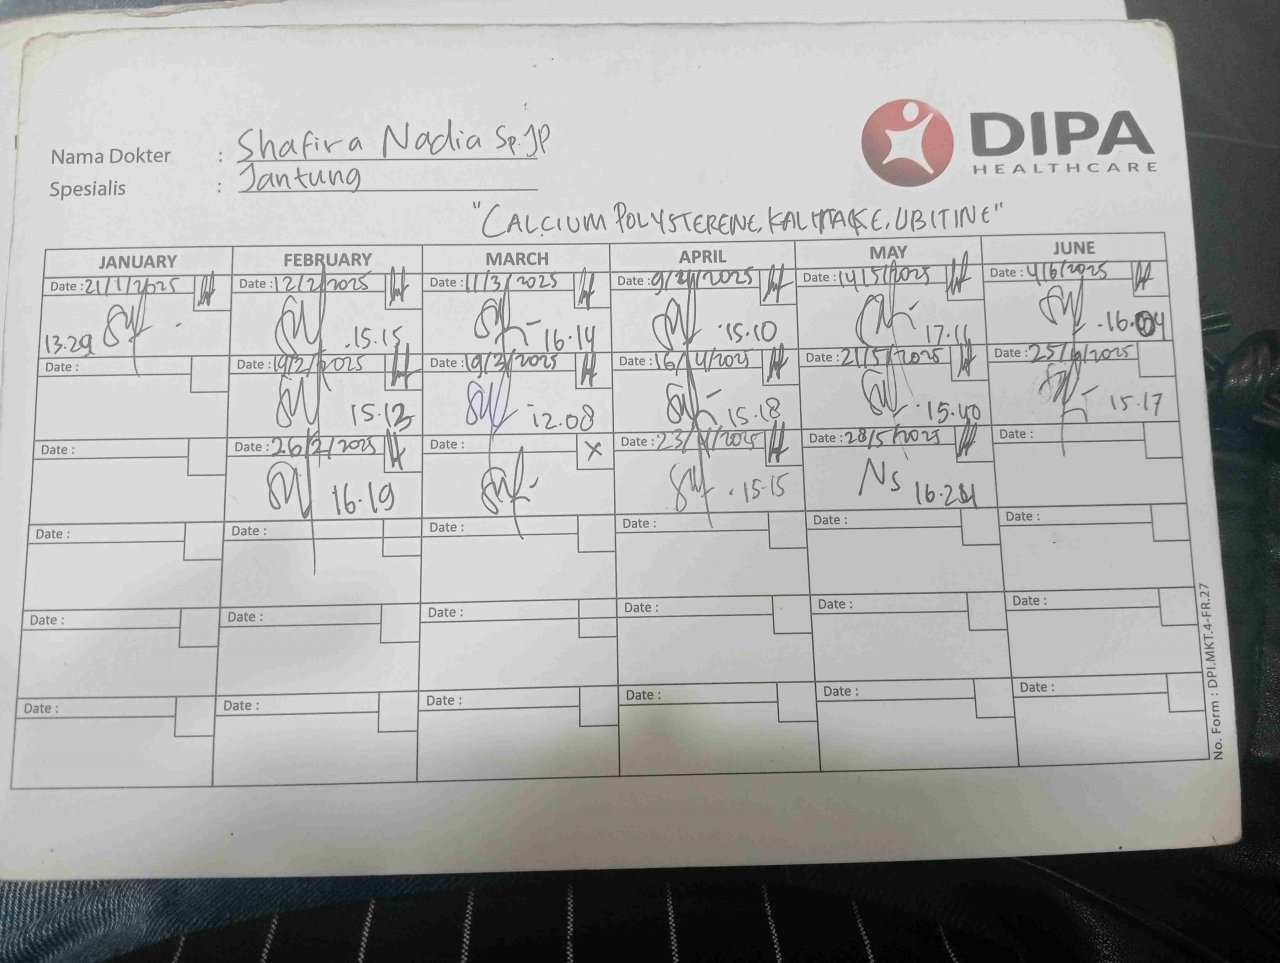 DIPA
HEALTHCARE
Nama Dokter : Shafira Nadia Sp.JP
Spesialis : Jantung
"CALCIUM POLYSTERENE, KALITAKE, UBITINE"
JANUARY FEBRUARY MARCH APRIL MAY JUNE
Date : 21/1/2025 Date : 12/2/2025 Date : 11/3/2025 Date : 9/4/2025 Date : 14/5/2025 Date : 4/6/2025
13.29 15.15 16.14 15.10 17.11 16.04
Date : Date : 19/2/2025 Date : 19/3/2025 Date : 16/4/2025 Date : 21/5/2025 Date : 25/6/2025
15.13 12.08 15.18 15.40 15.17
Date : Date : 26/2/2025 Date : X Date : 23/4/2025 Date : 28/5/2025 Date :
16.19 15.15 Ns
Date : Date : Date : Date : Date : Date :
Date : Date : Date : Date : Date : Date :
Date : Date : Date : Date : Date : Date :
No. Form : DPI.MKT.4-FR.27